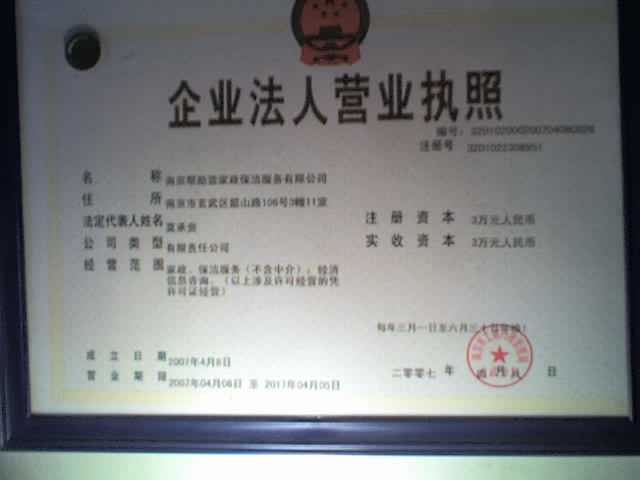 企业法人营业执照
编号:
注册号
名 称 南京帮励富家政保洁服务有限公司
住 所 南京市玄武区韶山路106号3幢11室
法定代表人姓名
公司类型 有限责任公司
经营范围 家政、保洁服务(不含中介);经济
信息咨询。(以上涉及许可经营的凭
许可证经营)
注册资本 3万元人民币
实收资本 3万元人民币
每年三月一日至六月三十日年检
成立日期 2007年4月6日
营业期限 2007年04月06日 至 2017年04月05日
二零零七 年 月 日